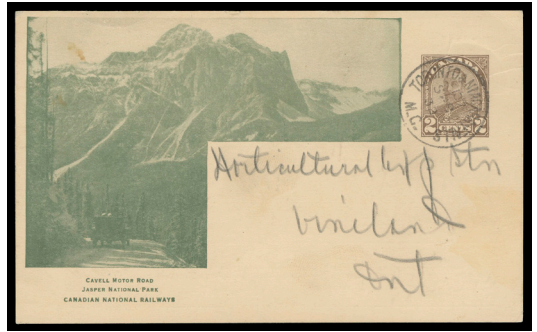 CAVELL MOTOR ROAD
JASPER NATIONAL PARK
CANADIAN NATIONAL RAILWAYS
CANADA
2 CENTS 2
TORONTO
M.C.
Horticultural Exp Stn
Vineland
Ont